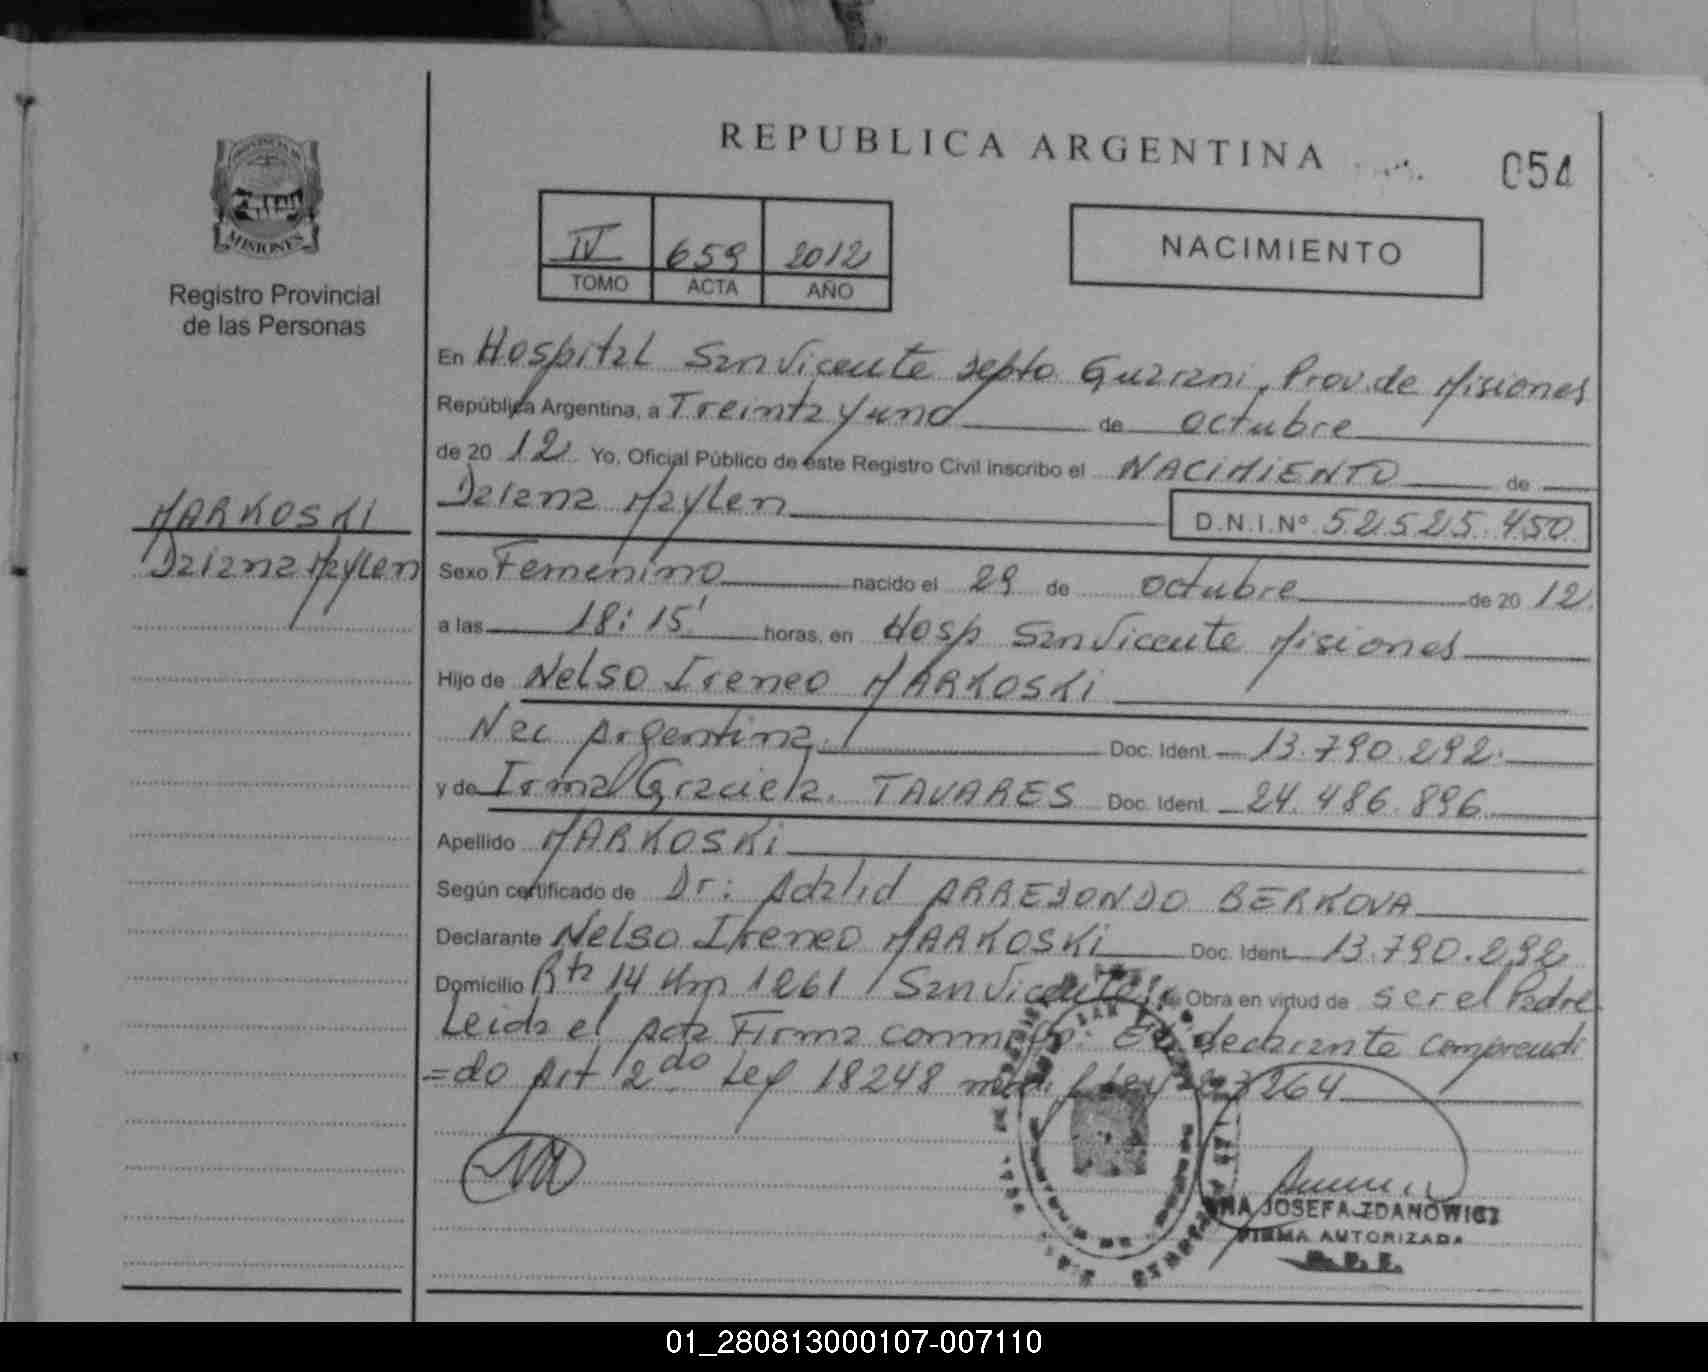 REPUBLICA ARGENTINA
054
MISIONES
Registro Provincial
de las Personas
IV 659 2012
TOMO ACTA AÑO
NACIMIENTO
En Hospital San Vicente depto Guarani, Prov. de Misiones
República Argentina, a Treinta y uno de octubre
de 20 12 Yo, Oficial Público de este Registro Civil inscribo el NACIMIENTO de
Daiana Maylen
D.N.I.Nº 52.525.450
MARKOSKI
Daiana Maylen
Sexo Femenino nacido el 29 de octubre de 20 12
a las 18:15' horas, en Hosp San Vicente Misiones
Hijo de Nelso Ireneo MARKOSKI
Nac Argentina Doc. Ident. 13.790.292
y de Irma Graciela TAVARES Doc. Ident. 24.486.896
Apellido MARKOSKI
Según certificado de Dr: Adalid ARREDONDO BERKOVA
Declarante Nelso Ireneo MARKOSKI Doc. Ident. 13.790.292
Domicilio Rta 14 Km 1261 San Vicente Obra en virtud de ser el Padre
Leida el Acta Firma conmigo: El declarante comprendi
=do Art 2do Ley 18248
ANA JOSEFA ZDANOWICZ
FIRMA AUTORIZADA
01_280813000107-007110